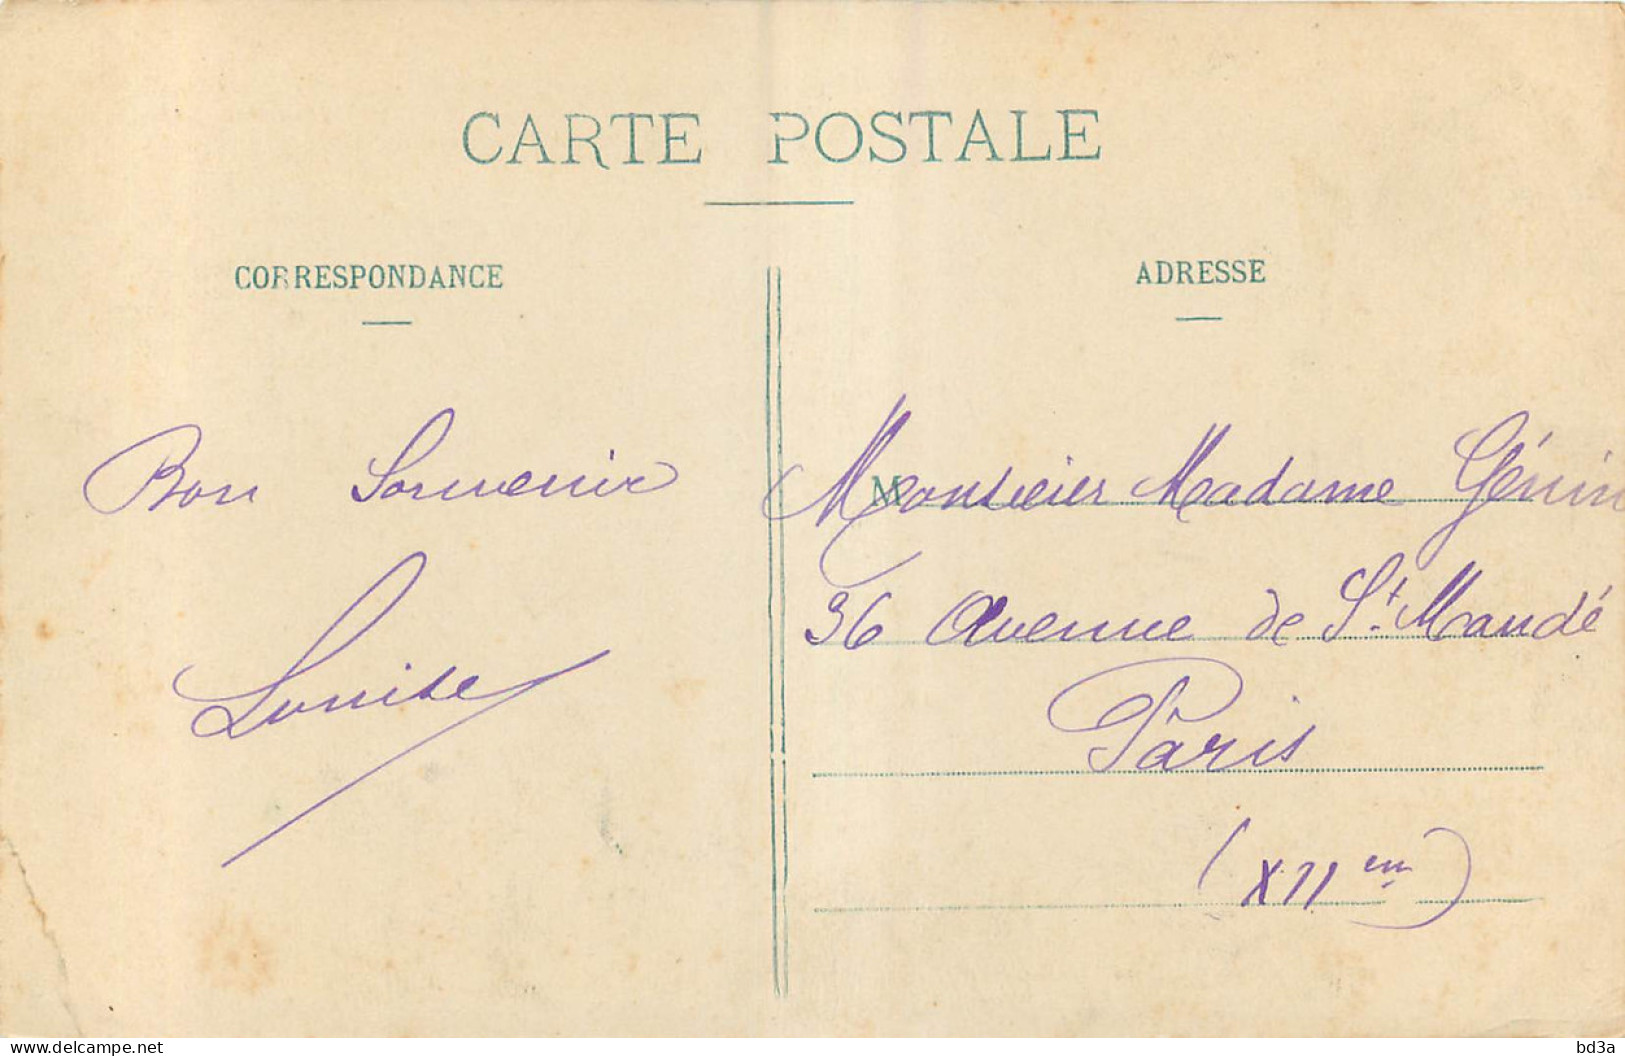 CARTE POSTALE
CORRESPONDANCE
ADRESSE
Bon Souvenir
Louise
M
Monsieur Madame Génin
36 Avenue de St. Mandé
Paris
(XII em)
delcampe.net
bd3a